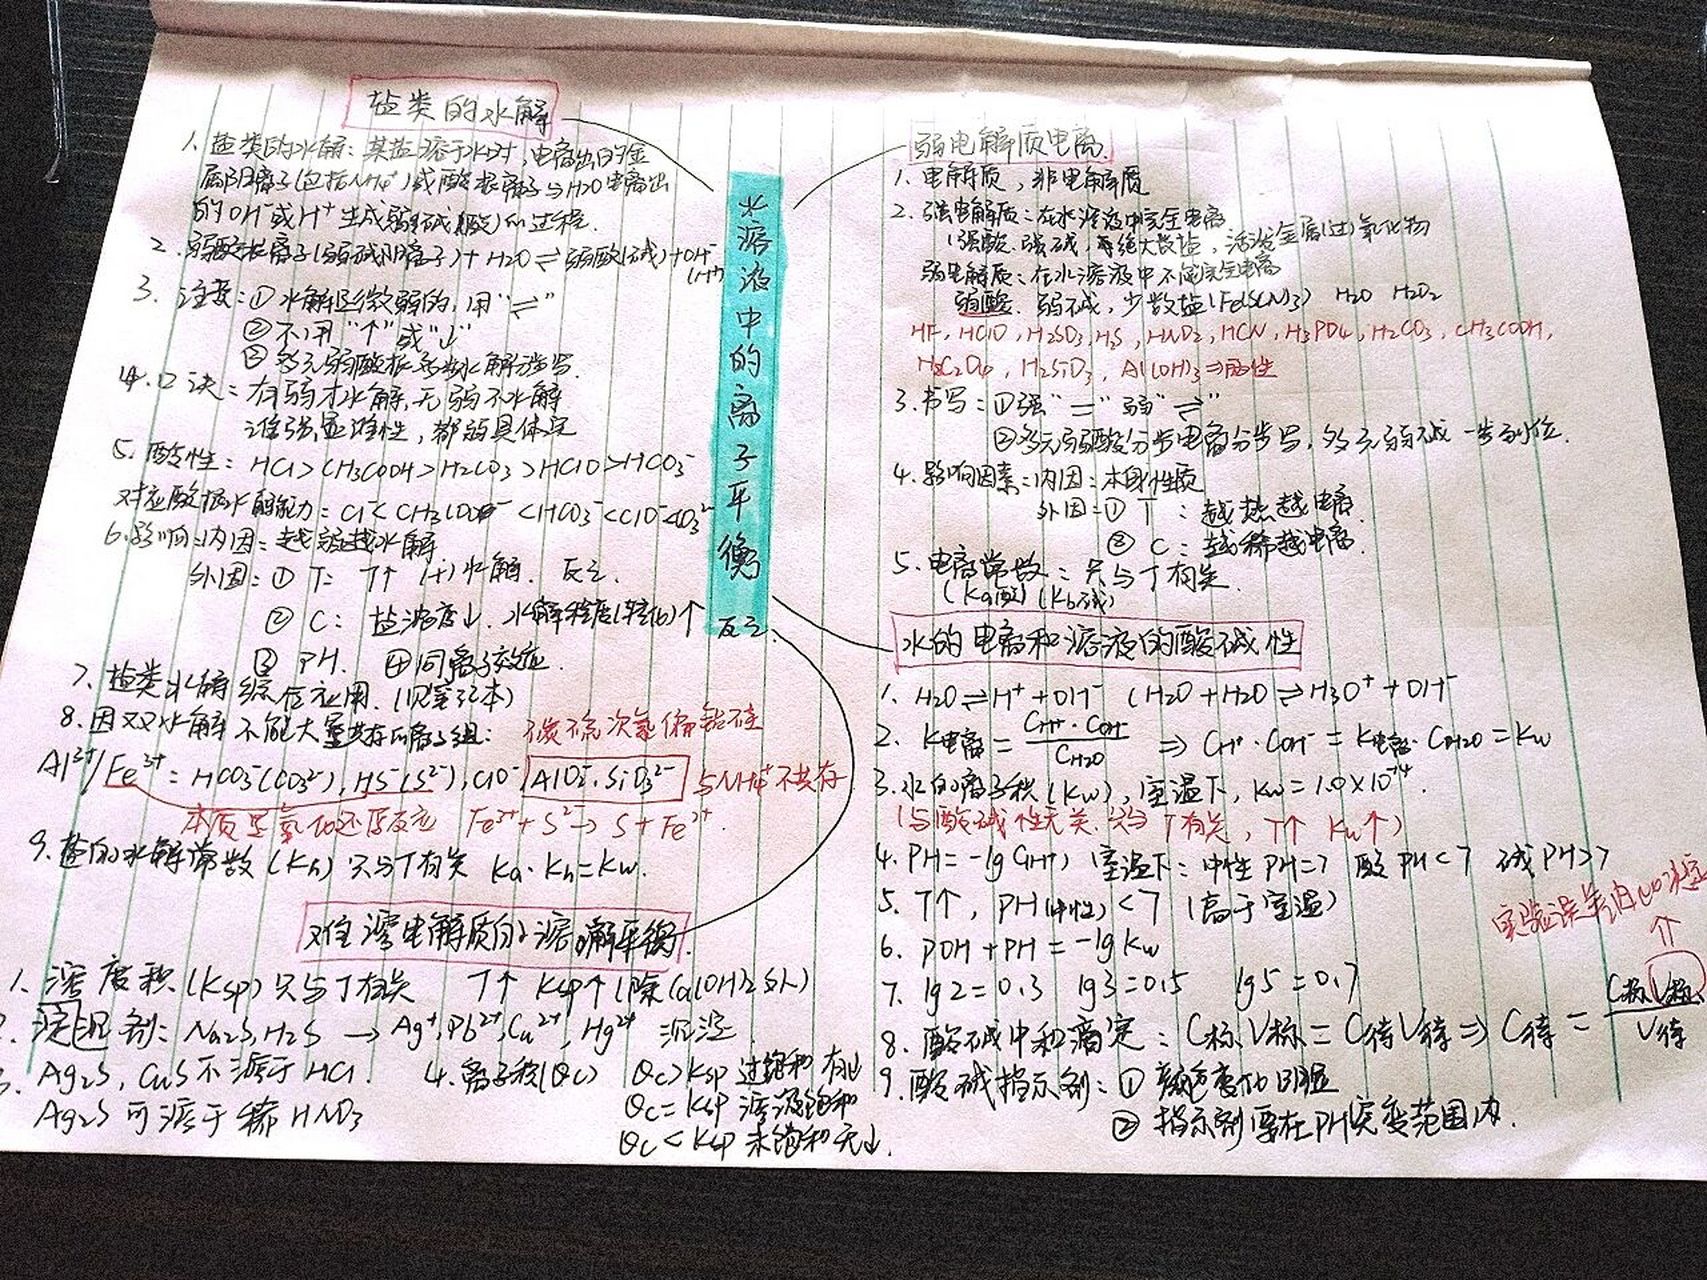 水溶液中的离子平衡
盐类的水解
1. 盐类的水解：某盐溶于水时，电离出的金
属阳离子(包括NH₄⁺)或酸根离子与H2O电离出
的OH⁻或H⁺生成弱碱(酸)的过程.
2. 弱酸根离子(弱碱阳离子)+H2O⇌弱酸(碱)+OH⁻
(H⁺)
3. 注意：① 水解是微弱的，用"⇌"
② 不用"↑"或"↓"
③ 多元弱酸根分步水解
4. 口诀：有弱才水解，无弱不水解
谁强显谁性，都弱具体定
5. 酸性：HCl>CH3COOH>H2CO3>HClO>HCO3⁻
对应酸根水解能力：Cl⁻<CH3COO⁻<HCO3⁻<ClO⁻<CO3²⁻
6. 影响：内因：越弱越水解
外因：① T: T↑ (+)水解. 反之.
② C: 盐浓度↓. 水解程度(转化)↑ 反之.
③ PH. ④同离子效应.
7. 盐类水解综合应用. (见笔记本)
8. 因双水解不能大量共存的离子组：
Al³⁺/Fe³⁺ = HCO3⁻(CO3²⁻), HS⁻(S²⁻), ClO⁻ AlO2⁻. SiO3²⁻ 与NH4⁺不共存
本质是氧化还原反应 Fe³⁺+S²⁻→S+Fe²⁺.
9. 盐的水解常数(Kh) 只与T有关 Ka·Kh=Kw.
难溶电解质的溶解平衡.
1. 溶度积(Ksp)只与T有关 T↑ Ksp↑(除Ca(OH)2外)
2. 沉淀剂：Na2S,H2S → Ag⁺,Pb²⁺,Cu²⁺,Hg²⁺ 沉淀
3. Ag2S, CuS不溶于HCl.
Ag2S可溶于稀HNO3
4. 离子积(Qc) Qc>Ksp 过饱和 有↓
Qc=Ksp 溶液饱和
Qc<Ksp 未饱和 无↓.
弱电解质电离.
1. 电解质，非电解质
2. 强电解质：在水溶液中完全电离
(强酸. 强碱，绝大数盐，活泼金属(过)氧化物
弱电解质：在水溶液中不能完全电离
弱酸. 弱碱，少数盐(Fe(SCN)3) H2O H2O2
HF, HClO, H2SO3, H2S, HNO2, HCN, H3PO4, H2CO3, CH3COOH,
H2C2O4, H2SiO3, Al(OH)3⇒两性
3. 书写：①强"=" 弱"⇌"
②多元弱酸分步电离分步写，多元弱碱一步到位.
4. 影响因素：内因：本身性质
外因：① T：越热越电离.
② C：越稀越电离.
5. 电离常数：只与T有关.
(Ka酸) (Kb碱)
水的电离和溶液的酸碱性
1. H2O⇌H⁺+OH⁻ (H2O+H2O⇌H3O⁺+OH⁻
2. K电离 = CH⁺·COH⁻ / CH2O ⇒ CH⁺·COH⁻=K电离·CH2O=Kw
3. 水的离子积(Kw), 室温下, Kw=1.0×10⁻¹⁴.
(与酸碱性无关. 只与T有关, T↑ Kw↑)
4. PH=-lgC(H⁺) 室温下：中性 PH=7 酸 PH<7 碱 PH>7
5. T↑, PH(中性)<7 (高于室温)
6. POH+PH=-lgKw
7. lg2=0.3 lg3=0.5 lg5=0.7
8. 酸碱中和滴定：C标V标=C待V待⇒C待= C标V标 / V待
9. 酸碱指示剂：① 颜色变化明显
② 指示剂要在PH突变范围内.